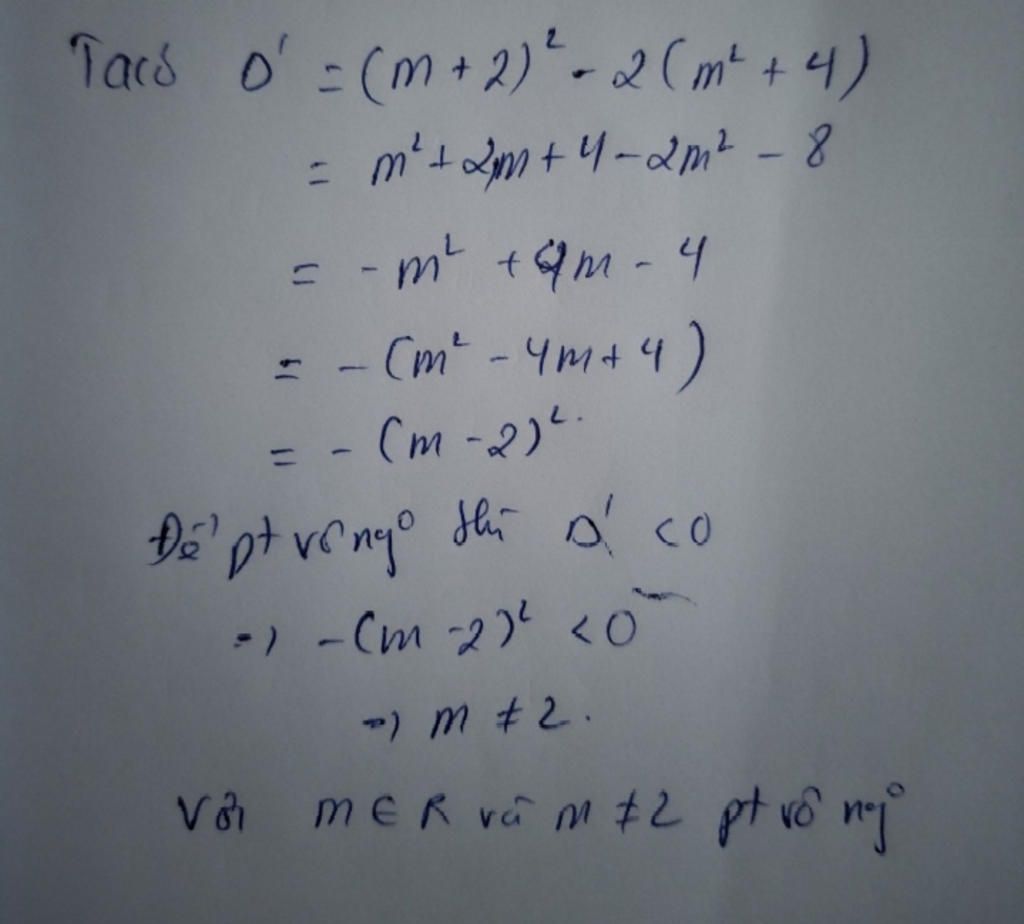 Ta có Δ' = (m + 2)² - 2(m² + 4)
= m² + 2m + 4 - 2m² - 8
= - m² + 4m - 4
= - (m² - 4m + 4)
= - (m - 2)².
Để pt vô ngº thì Δ' < 0
=) - (m - 2)² < 0
=) m ≠ 2.
Với m ∈ R và m ≠ 2 pt vô ngº